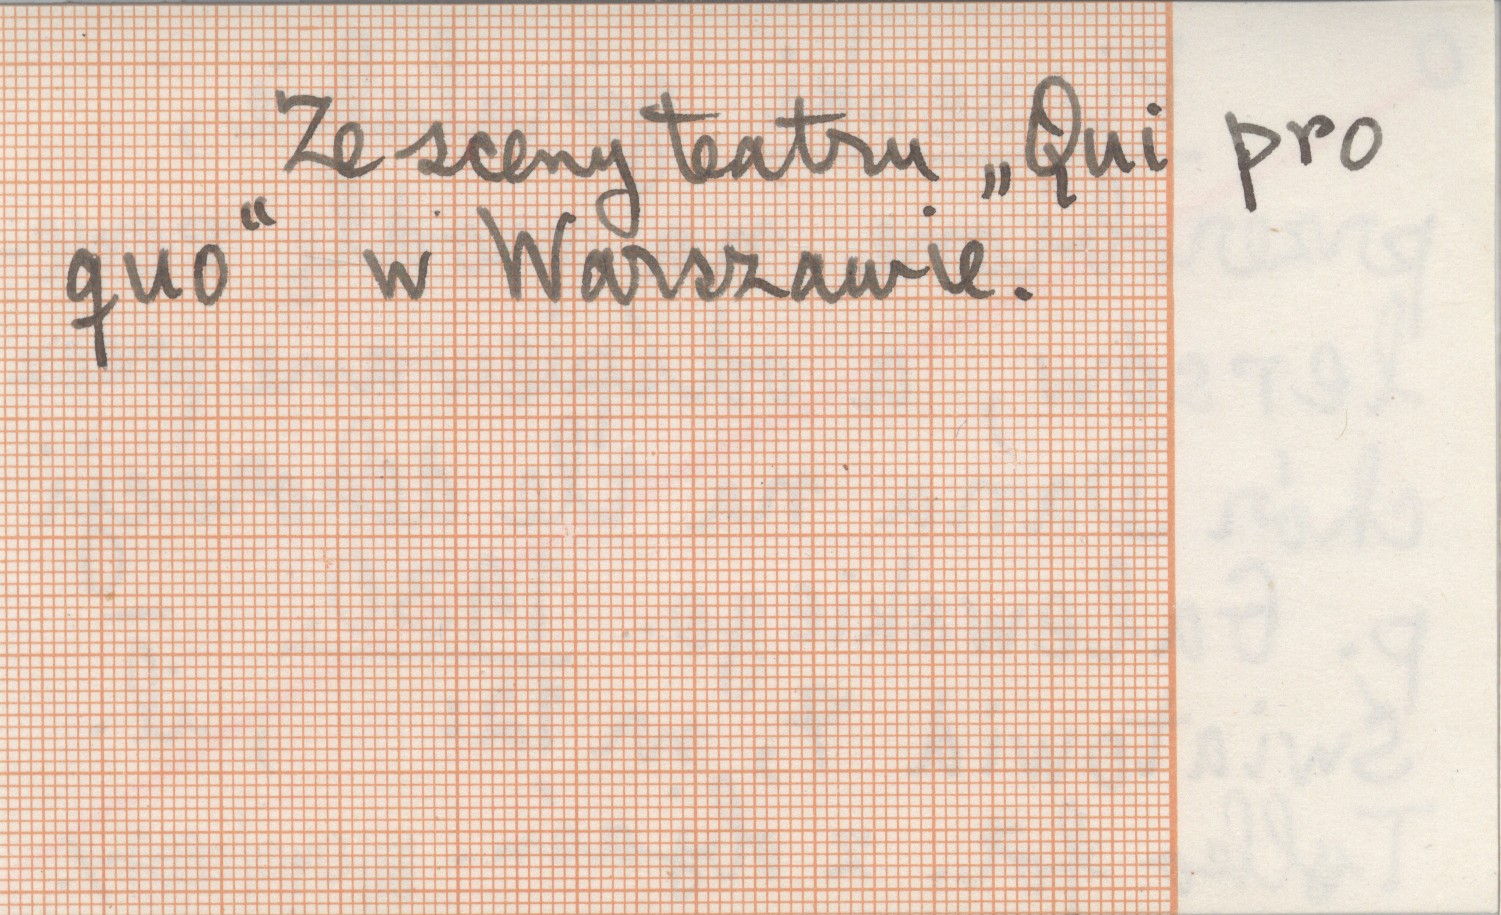 Ze sceny teatru „Qui pro
quo“ w Warszawie.